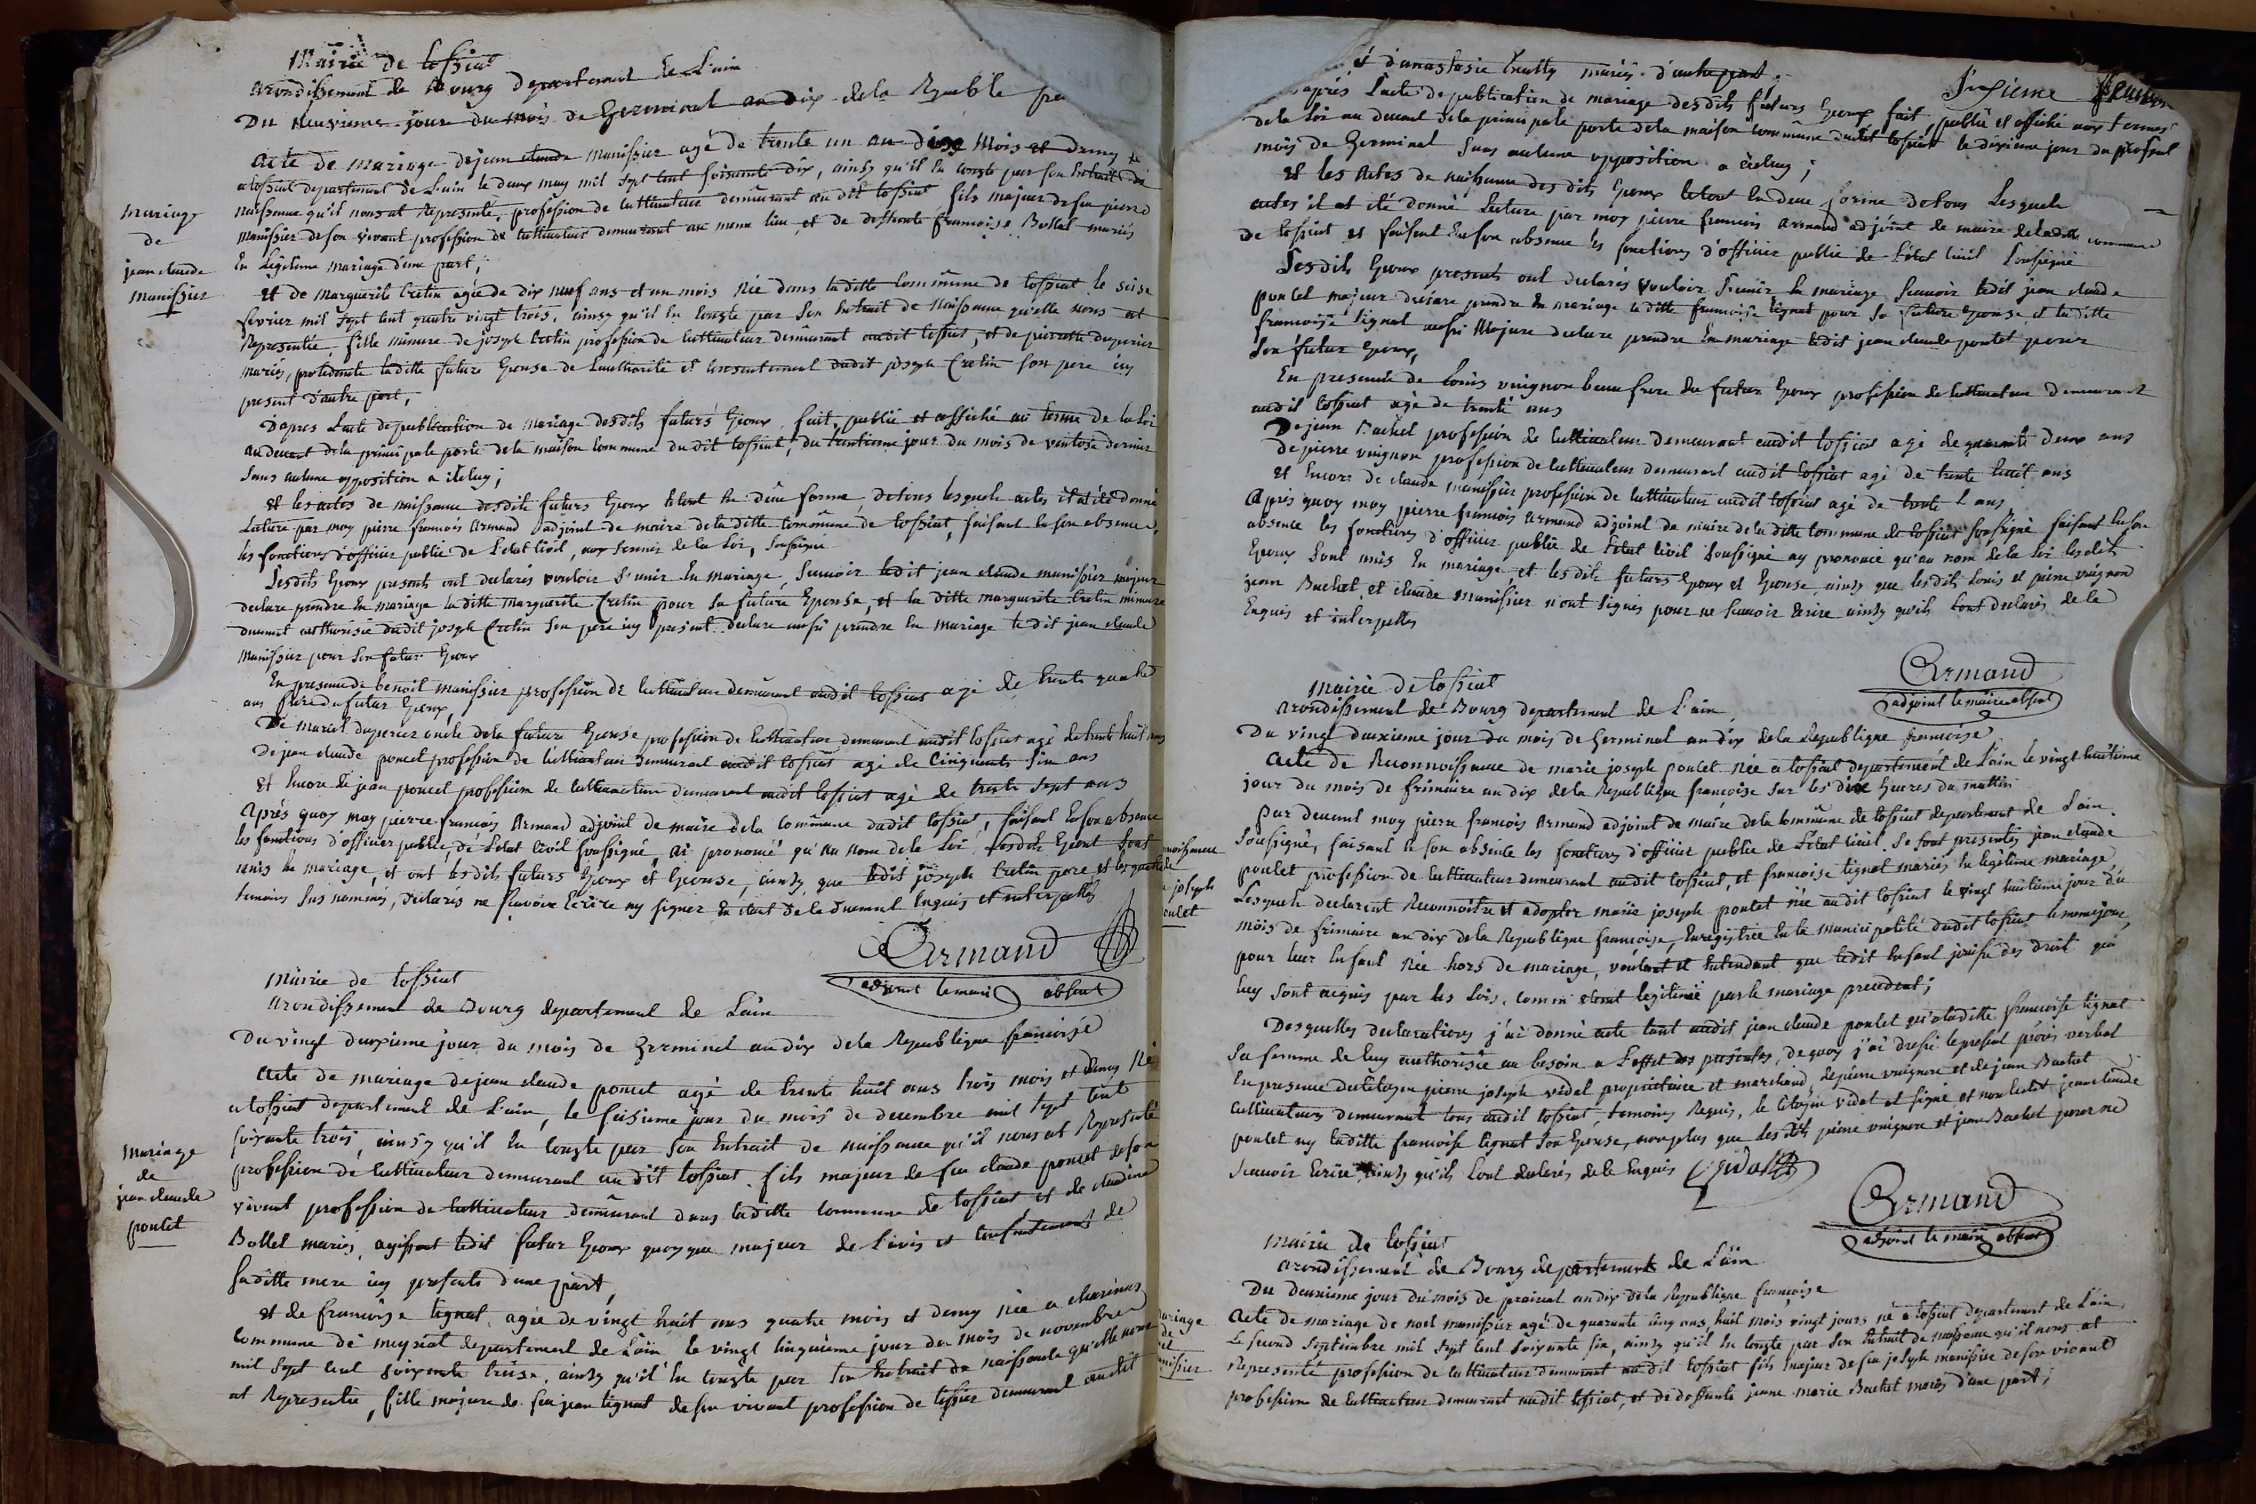 Mairie de tossiat
arondissement de Bourg departement de L'ain
Du neuvieme jour du mois de Germinal an dix de la Republ
acte de mariage de jean claude manissier agé de trente un an dix mois et demy
a tossiat departement de L'ain le deux may mil sept cent soixante dix, ainsy qu'il En conste par son Extrait de
naissance qu'il nous at Representé, profession de cultivateur demeurant au dit tossiat, fils majeur de feu pierre
manissier de son vivant profession de cultivateur demeurant au meme lieu, et de françoise Bollet mariés
En Légitime mariage d'une part;
mariage
de
jean claude
manissier
Et de marguerite Cretin agée de dix neuf ans et un mois Née dans laditte commune de tossiat le seise
fevrier mil sept cent quatre vingt trois, ainsy qu'il En conste par son Extrait de naissance qu'elle nous at
Representée, fille mineure de joseph Cretin profession de cultivateur demeurant audit tossiat, et de
mariés, laditte future Epouse de Lauthorité et consentement dudit joseph Cretin son pere icy
present d'autre part,
D'apres L'acte de publication de mariage desdits futurs Epoux, fait, publié et affiché au terme de la Loi
au devant de la principale porte de la maison commune du dit tossiat, du trentieme jour du mois de ventose dernier
sans aulcune opposition a iceluy;
Et les actes de naissance desdits futurs Epoux Etant En düe forme, de tous lesquels actes il at été donné
Lecture par moy pierre françois armand adjoint de maire de laditte commune de tossiat, faisant En son absence
les fonctions d'officier public de L'etat Civil, aux termes de la Loi, soussigné
Lesdits Epoux presents ont declarés vouloir s'unir En mariage, scavoir ledit jean claude manissier majeur
declare prendre En mariage la ditte marguerite Cretin pour sa future Epouse, et la ditte marguerite Cretin mineure
dument authorisée dudit joseph Cretin son pere icy present declare aussi prendre En mariage le dit jean claude
manissier pour son futur Epoux
En presence de benoit manissier profession de cultivateur demeurant audit tossiat agé de trente quatre
ans frere du futur Epoux,
De oncle de la future Epouse profession de cultivateur demeurant audit tossiat agé de trente huit ans
De jean claude poncet profession de cultivateur demeurant audit tossiat agé de Cinquante six ans
Et Encore de jean poncet profession de cultivateur demeurant audit tossiat agé de trente sept ans
Après quoy moy pierre françois Armand adjoint de maire de la commune dudit tossiat, faisant En son absence
les fonctions d'officier public, de L'etat Civil soussigné, ai prononcé qu'au nom de la Loi Lesdits Epoux sont
unis En mariage, et ont lesdits futurs Epoux et Epouse, ainsy que ledit joseph Cretin pere et les quatre
temoins sus nommés, declarés ne scavoir Ecrire ny signer En etant de le dument Enquis et interpellés
Armand
adjoint le maire absent
Mairie de tossiat
arondissement de Bourg departement de Lain
Du vingt deuxieme jour du mois de Germinal an dix de la Republique françoise
acte de mariage de jean claude poncet agé de trente huit ans trois mois et demy Né
a tossiat departement de L'ain, le seisieme jour du mois de decembre mil sept cent
soixante trois, ainsy qu'il En conste par son Extrait de naissance qu'il nous at Representé
profession de cultivateur demeurant au dit tossiat, fils majeur de feu claude poncet de son
vivant profession de cultivateur demeurant dans laditte commune de tossiat et de claudine
Bollet mariés, agissant ledit futur Epoux quoyque majeur de L'avis et consentement de
saditte mere icy presente d'une part,
mariage
de
jean claude
poncet
Et de françoise tignat, agée de vingt huit ans quatre mois et demy née a
commune de meyriat departement de Lain le vingt cinquieme jour du mois de novembre
mil sept cent soixante treise, ainsy qu'il En conste par son Extrait de naissance qu'elle nous
at Representée, fille majeure de feu jean tignat de son vivant profession de tissier demeurant audit
et d'anastasie mariés d'autre part;
Sixieme feuillet
après L'acte de publication de mariage desdits futurs Epoux fait, publié et affiché aux termes
de la Loi au devant de la principale porte de la maison commune dudit tossiat le dixieme jour du present
mois de Germinal sans aulcune opposition a iceluy;
Et les Actes de naissance des dits Epoux Etant En deue forme de tous Lesquels
actes il at été donné Lecture par moy pierre francois armand adjoint de maire de laditte commune
de tossiat et faisant En son absence les fonctions d'officier public de L'état Civil soussigné
Lesdits Epoux presents ont declarés vouloir s'unir En mariage scavoir ledit jean claude
poncet majeur declare prendre En mariage la ditte françoise tignat pour sa future Epouse, et la ditte
françoise tignat aussi majeure declare prendre En mariage ledit jean claude poncet pour
son futur Epoux,
En presence de Louis vuignon beau frere du futur Epoux profession de cultivateur demeurant
audit tossiat agé de trente ans
De jean Bachet profession de cultivateur demeurant audit tossiat agé de quarante deux ans
De pierre vuignon profession de cultivateur demeurant audit tossiat agé de trente huit ans
et Encore de claude manissier profession de cultivateur audit tossiat agé de trente ans
Après quoy moy pierre francois Armand adjoint de maire de la ditte commune de tossiat soussigné faisant En son
absence les fonctions d'officier public de L'etat Civil soussigné ay prononcé qu'au nom de la Loi les dits
Epoux sont unis En mariage, et les dits futurs Epoux et Epouse, ainsy que les dits Louis et pierre vuignon
jean Bachet et claude manissier n'ont signés pour ne scavoir Ecrire ainsy qu'ils l'ont declarés de le
Enquis et interpellés
Armand
adjoint le maire absent
Mairie de tossiat
arondissement de Bourg departement de L'ain
Du vingt deuxieme jour du mois de Germinal an dix de la Republique françoise
acte de Reconnoissance de marie joseph poncet Née a tossiat departement de L'ain le vingt huitieme
jour du mois de frimaire an dix de la Republique françoise sur les dix heures du matin
Par devant moy pierre francois Armand adjoint de maire de la commune de tossiat departement de Lain
soussigné, faisant En son absence les fonctions d'officier public de L'etat Civil. Se sont presentés jean claude
poncet profession de cultivateur demeurant audit tossiat, et françoise tignat mariés En légitime mariage
Lesquels declarent Reconnoitre et adopter marie joseph poncet née audit tossiat le vingt huitieme jour du
mois de frimaire an dix de la Republique françoise, Enregistrée En la municipalité dudit tossiat le meme jour,
pour leur Enfant née hors de mariage, voulant et Entendant que ledit Enfant jouisse des droits qui
luy sont acquis par les Lois, comm' etant légitimé par le mariage precedent;
noissance
joseph
oncet
Desquelles declarations j'ai donné acte tant audit jean claude poncet qu'a laditte françoise tignat
sa femme de luy authorisée au besoin a L'effet des presentes, de quoy j'ai dressé le present procès verbal
En presence du Citoyen pierre joseph vidal proprietaire et marchand, de pierre vuignon et de jean Bachet
cultivateurs demeurant tous audit tossiat, temoins Requis, le Citoyen vidal at signé et non ledit jean claude
poncet ny laditte françoise tignat son Epouse, non plus que les dits pierre vuignon et jean Bachet pour ne
scavoir Ecrire ainsy qu'ils l'ont declarés de le Enquis
Vidal
Armand
adjoint le maire absent
Mairie de tossiat
arondissement de Bourg departement de L'ain
Du deuxieme jour du mois de prairial an dix de la Republique françoise
ariage
de
el
nissier
acte de mariage de noel manissier agé de quarante cinq ans, huit mois, vingt jours né a tossiat departement de L'ain
Le second septembre mil sept cent Cinquante six, ainsy qu'il En conste par son Extrait de naissance qu'il nous at
representé profession de cultivateur demeurant audit tossiat fils majeur de feu joseph manissier de son vivant
profession de cultivateur demeurant audit tossiat, et de deffunte jeanne marie Bachet mariés d'une part;